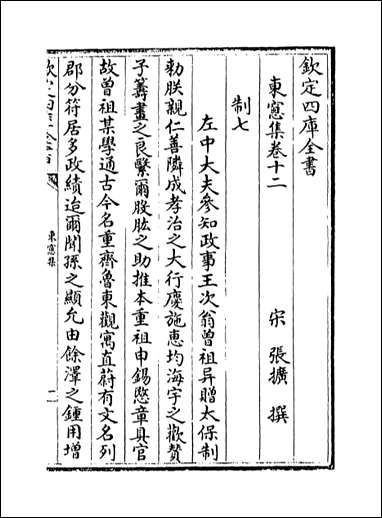 欽定四庫全書
東窻集卷十二
宋 張擴 撰
制七
左中大夫參知政事王次翁曾祖异贈太保制
勅朕親仁善隣成孝治之大行慶施惠均海宇之歡賛
子籌畫之良繄爾股肱之助推本重祖申錫愍章具官
故曾祖某學通古今名重齊魯東觀寓直蔚有文名列
郡分符居多政績迨爾聞孫之顯允由餘澤之鍾用增
東窻集